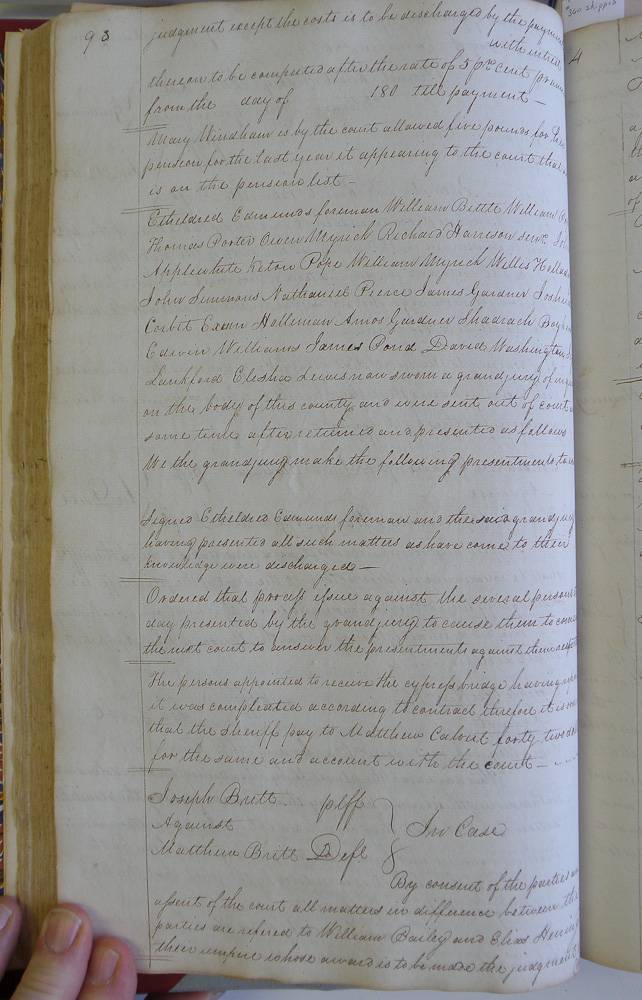 93
judgement except the costs is to be discharged by the paymen
with intrest
thereon to be computed after the rate of 5 pr cent pr ann
from the day of 180 till payment —
Mary Windham is by the court allowed five pounds for her
pension for the last year it appearing to the court that
is on the pension list —
Etheldred Edmunds foreman William Bittle William
Thomas Porter Owen Myrick Richard Harrison senr.
Applewhite Keton Pope William Myrick Willis
John Simmons Nathaniel Pierce James Gardner Joshua
Corbit Exum Holliman Amos Gardner Shadrach
Edwin Williams James Pond David Washington
Lankford Elisha Lewis now sworn a grand jury of
on the body of this county and were sent out of court
some time after returned and presented as follows
We the grand jury make the following presentments to
Signed Etheldred Edmunds foreman and the said grand jury
having presented all such matters as have come to their
knowledge were discharged —
Ordered that process issue against the several persons
day presented by the grand jury to cause them to
the next court to answer the presentments against them
The persons appointed to receive the cypress bridge having
it was compleated according to contract therefore it is
that the sheriff pay to Matthew Calvert forty two
for the same and account with the court —
Joseph Britt plff
Against
In Case
Matthew Britt Deft
By consent of the parties
assent of the court all matters in difference between the
parties are refered to William Bailey and Elias
their umpire whose award is to be made the judgment
4